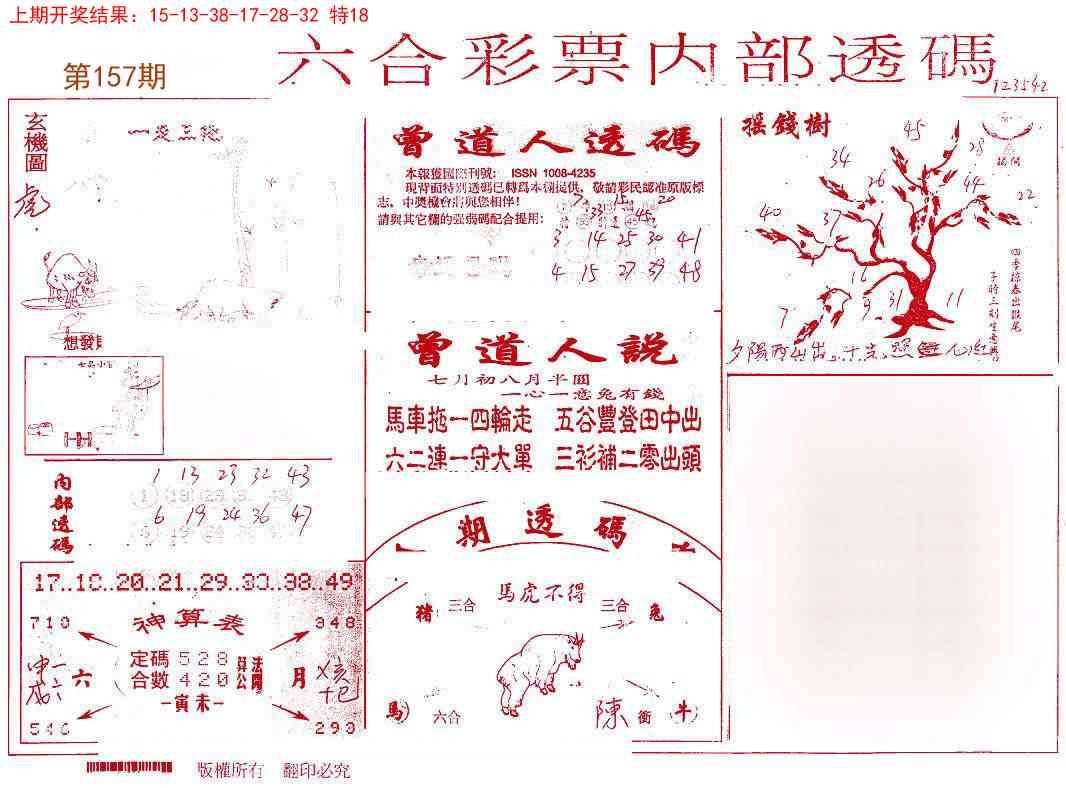 上期开奖结果：15-13-38-17-28-32 特18
六合彩票内部透碼
第157期
123542
玄機圖
虎
曾道人透碼
本報獲國際刊號： ISSN 1008-4235
現背面特別透碼已轉爲本欄提供，敬請彩民認准原版標
志，中奬機會將與您相伴！
請與其它欄的强弱碼配合提用：
3 14 25 30 41
4 15 27 39 48
摇錢樹
45
28
34
26
44
22
40
37
16
7
9
31
11
四季掠春出猴尾
想發
曾道人說
七月初八月半圓
一心一意兔有錢
馬車拖一四輪走 五谷豐登田中出
六二連一守大單 三衫補二零出頭
内部透碼
1 13 23 32 43
6 19 24 36 47
期透碼
馬虎不得
猪 三合
三合 兔
馬 六合
陳 衝 牛
17..18..20..21..29..30..38..49
710
神算表
348
定碼 528
合數 420
算公
法開
-寅未-
六
月
546
293
版權所有 翻印必究